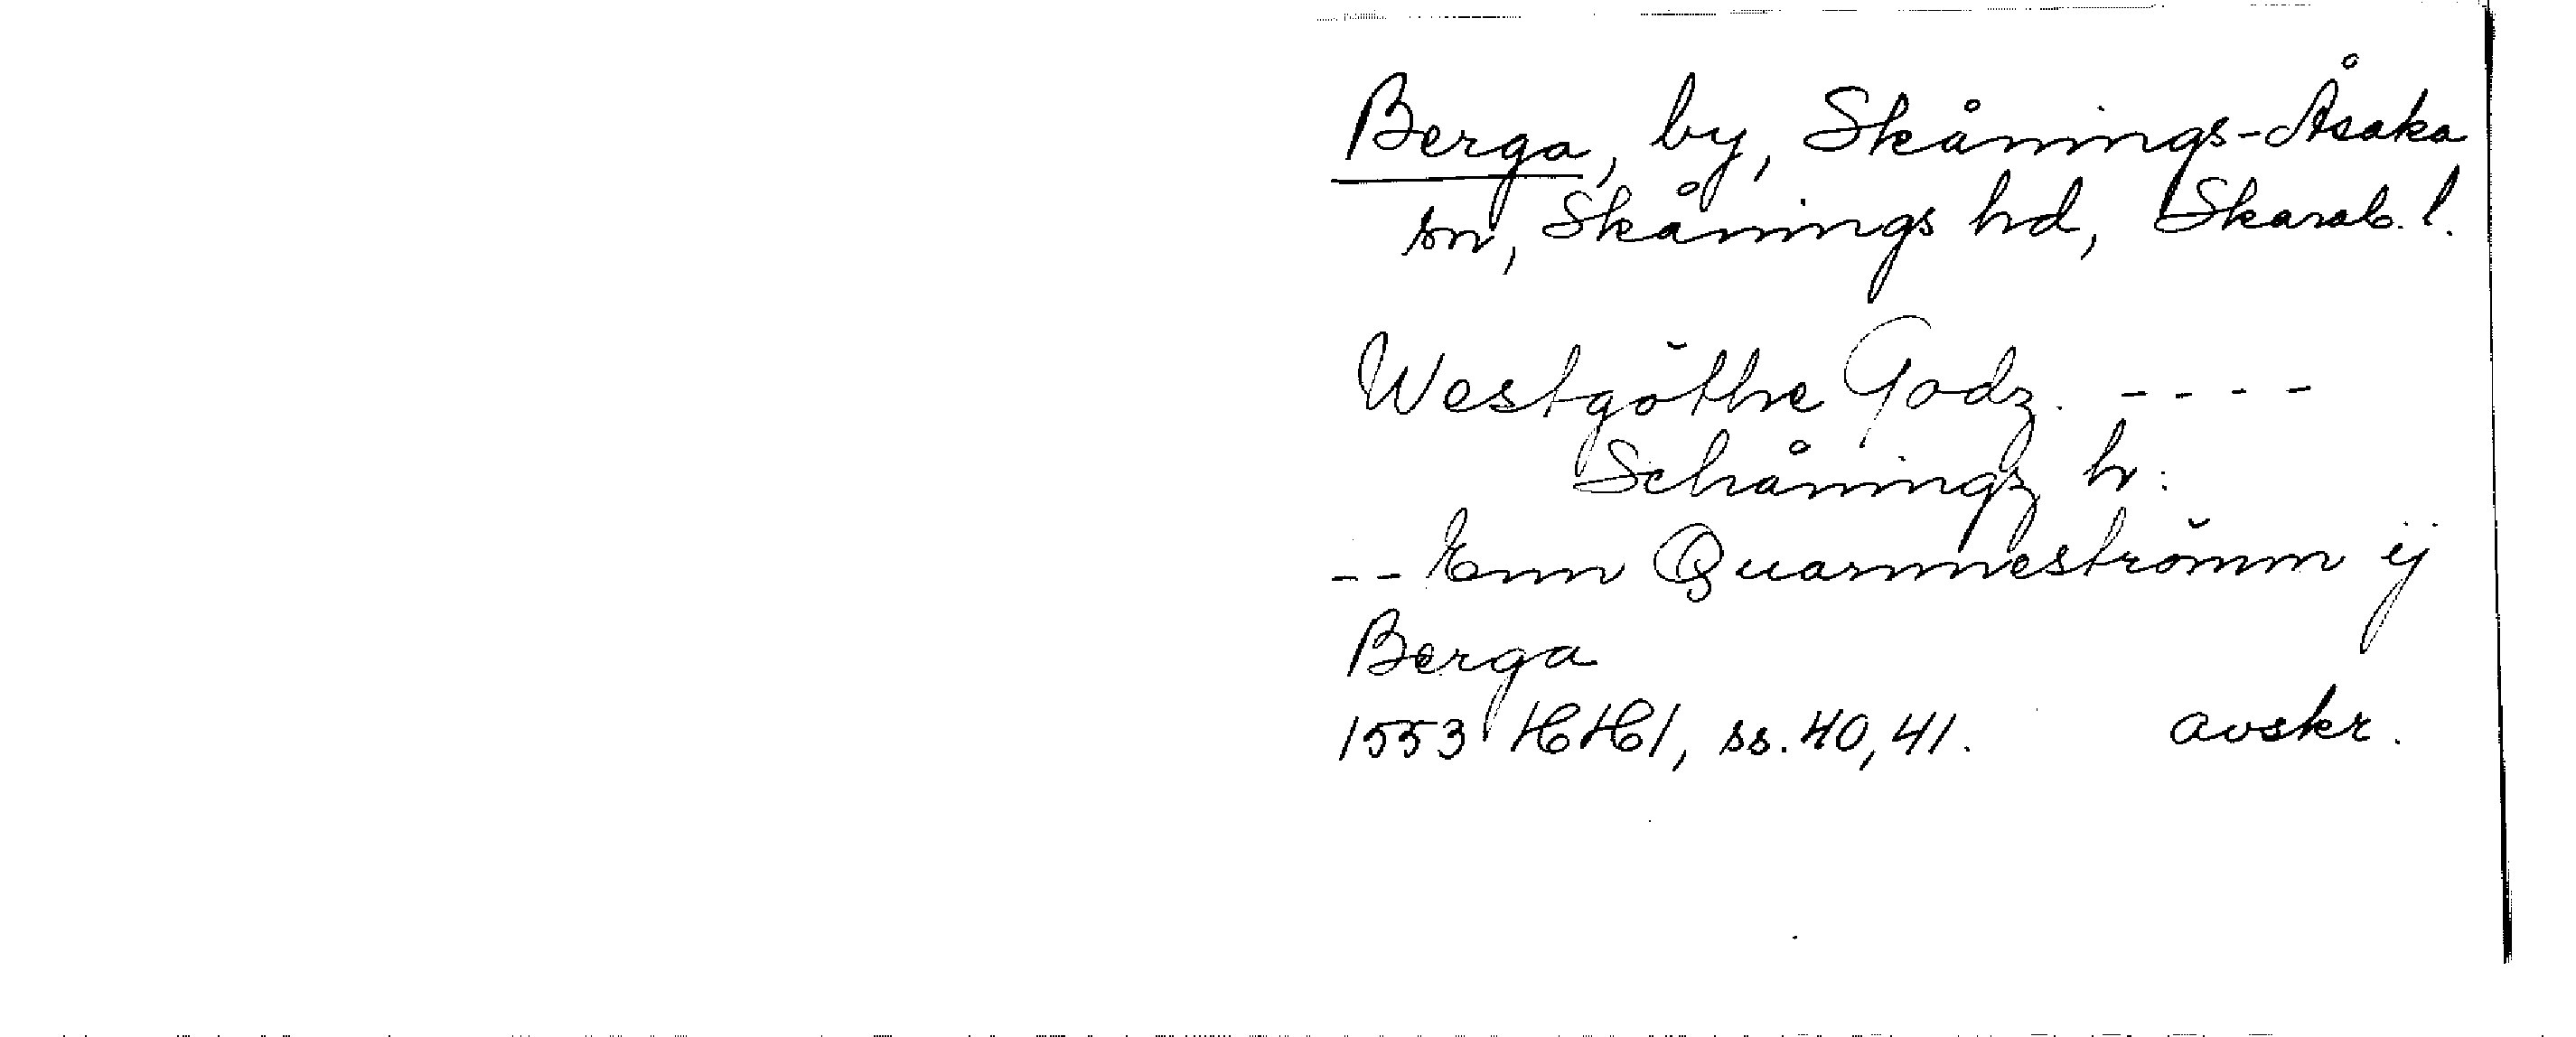 Berga, by, Skånings-Åsaka
sn, Skånings hd, Skarab. l.
Westgöthe Godz. - - - -
Schåningz h:
- - Enn Quarnneströmm ij
Berga
1553 HH1, ss. 40, 41. avskr.